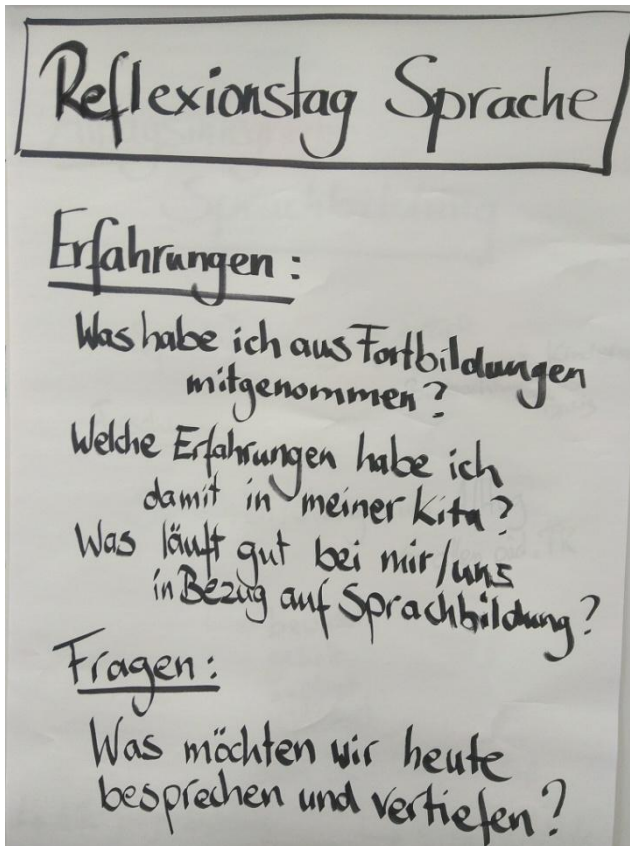 Reflexionstag Sprache
Erfahrungen:
Was habe ich aus Fortbildungen
mitgenommen?
Welche Erfahrungen habe ich
damit in meiner Kita?
Was läuft gut bei mir/uns
in Bezug auf Sprachbildung?
Fragen:
Was möchten wir heute
besprechen und vertiefen?